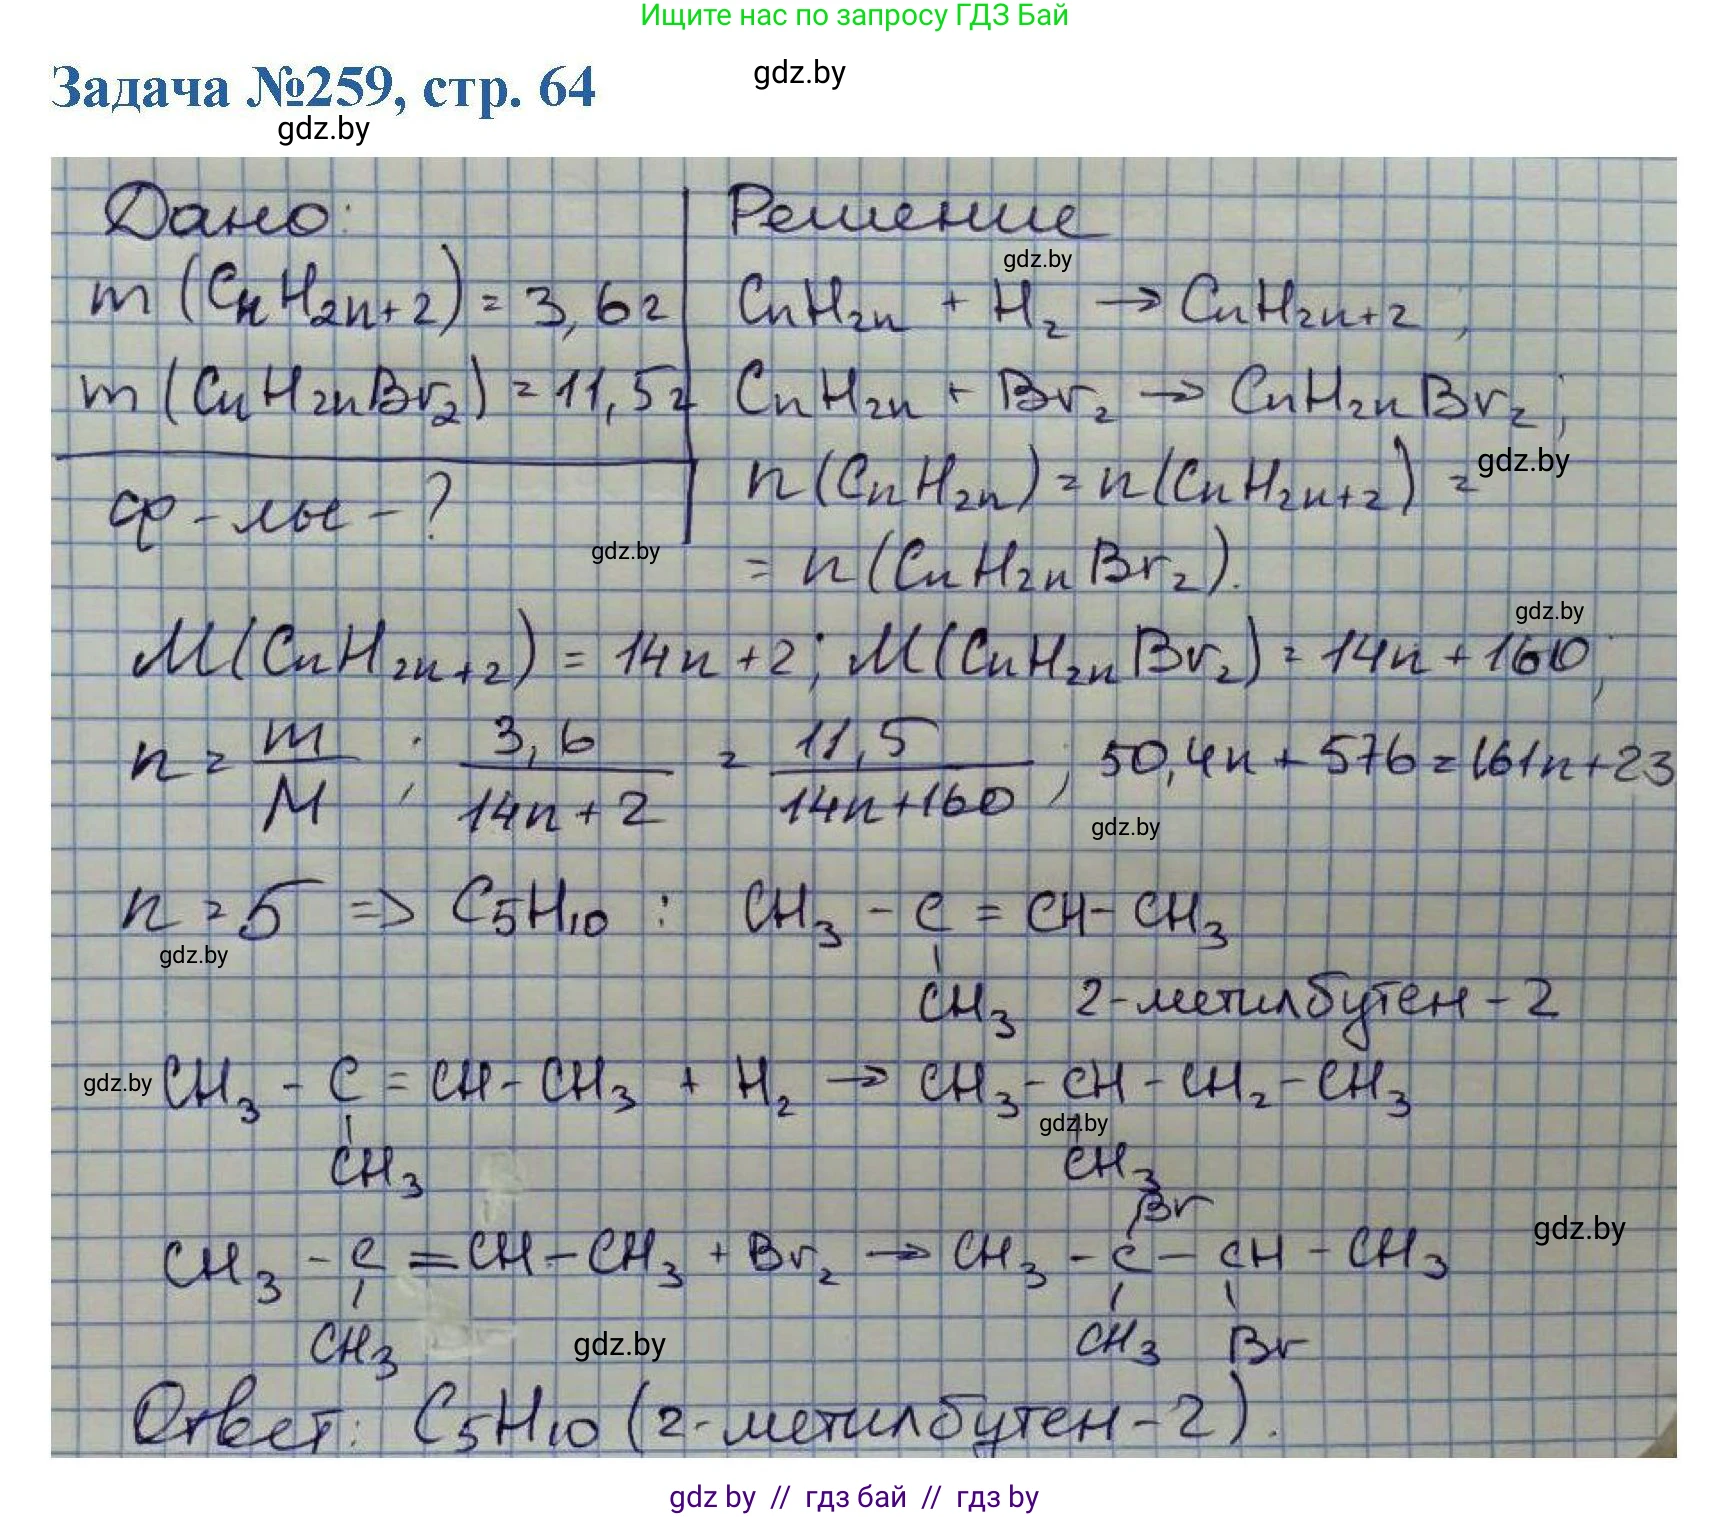 Ищите нас по запросу ГДЗ Бай
Задача №259, стр. 64
gdz.by
gdz.by
Дано:
m (CnH2n+2) = 3,6г
m (CnH2nBr2) = 11,5г
ф-лы - ?
gdz.by
Решение
gdz.by
CnH2n + H2 → CnH2n+2;
CnH2n + Br2 → CnH2nBr2;
gdz.by
n(CnH2n) = n(CnH2n+2) =
= n(CnH2nBr2).
gdz.by
M(CnH2n+2) = 14n + 2; M(CnH2nBr2) = 14n + 160;
n = m/M; 3,6/(14n + 2) = 11,5/(14n+160); 50,4n + 576 = 161n + 23
gdz.by
n = 5 => C5H10 : CH3 - C = CH - CH3
gdz.by
CH3 2-метилбутен-2
gdz.by CH3 - C = CH - CH3 + H2 → CH3 - CH - CH2 - CH3
gdz.by
CH3 CH3
Br
gdz.by
CH3 - C = CH - CH3 + Br2 → CH3 - C - CH - CH3
CH3 gdz.by CH3 Br
Ответ: C5H10 (2-метилбутен-2).
gdz by // гдз бай // гдз by